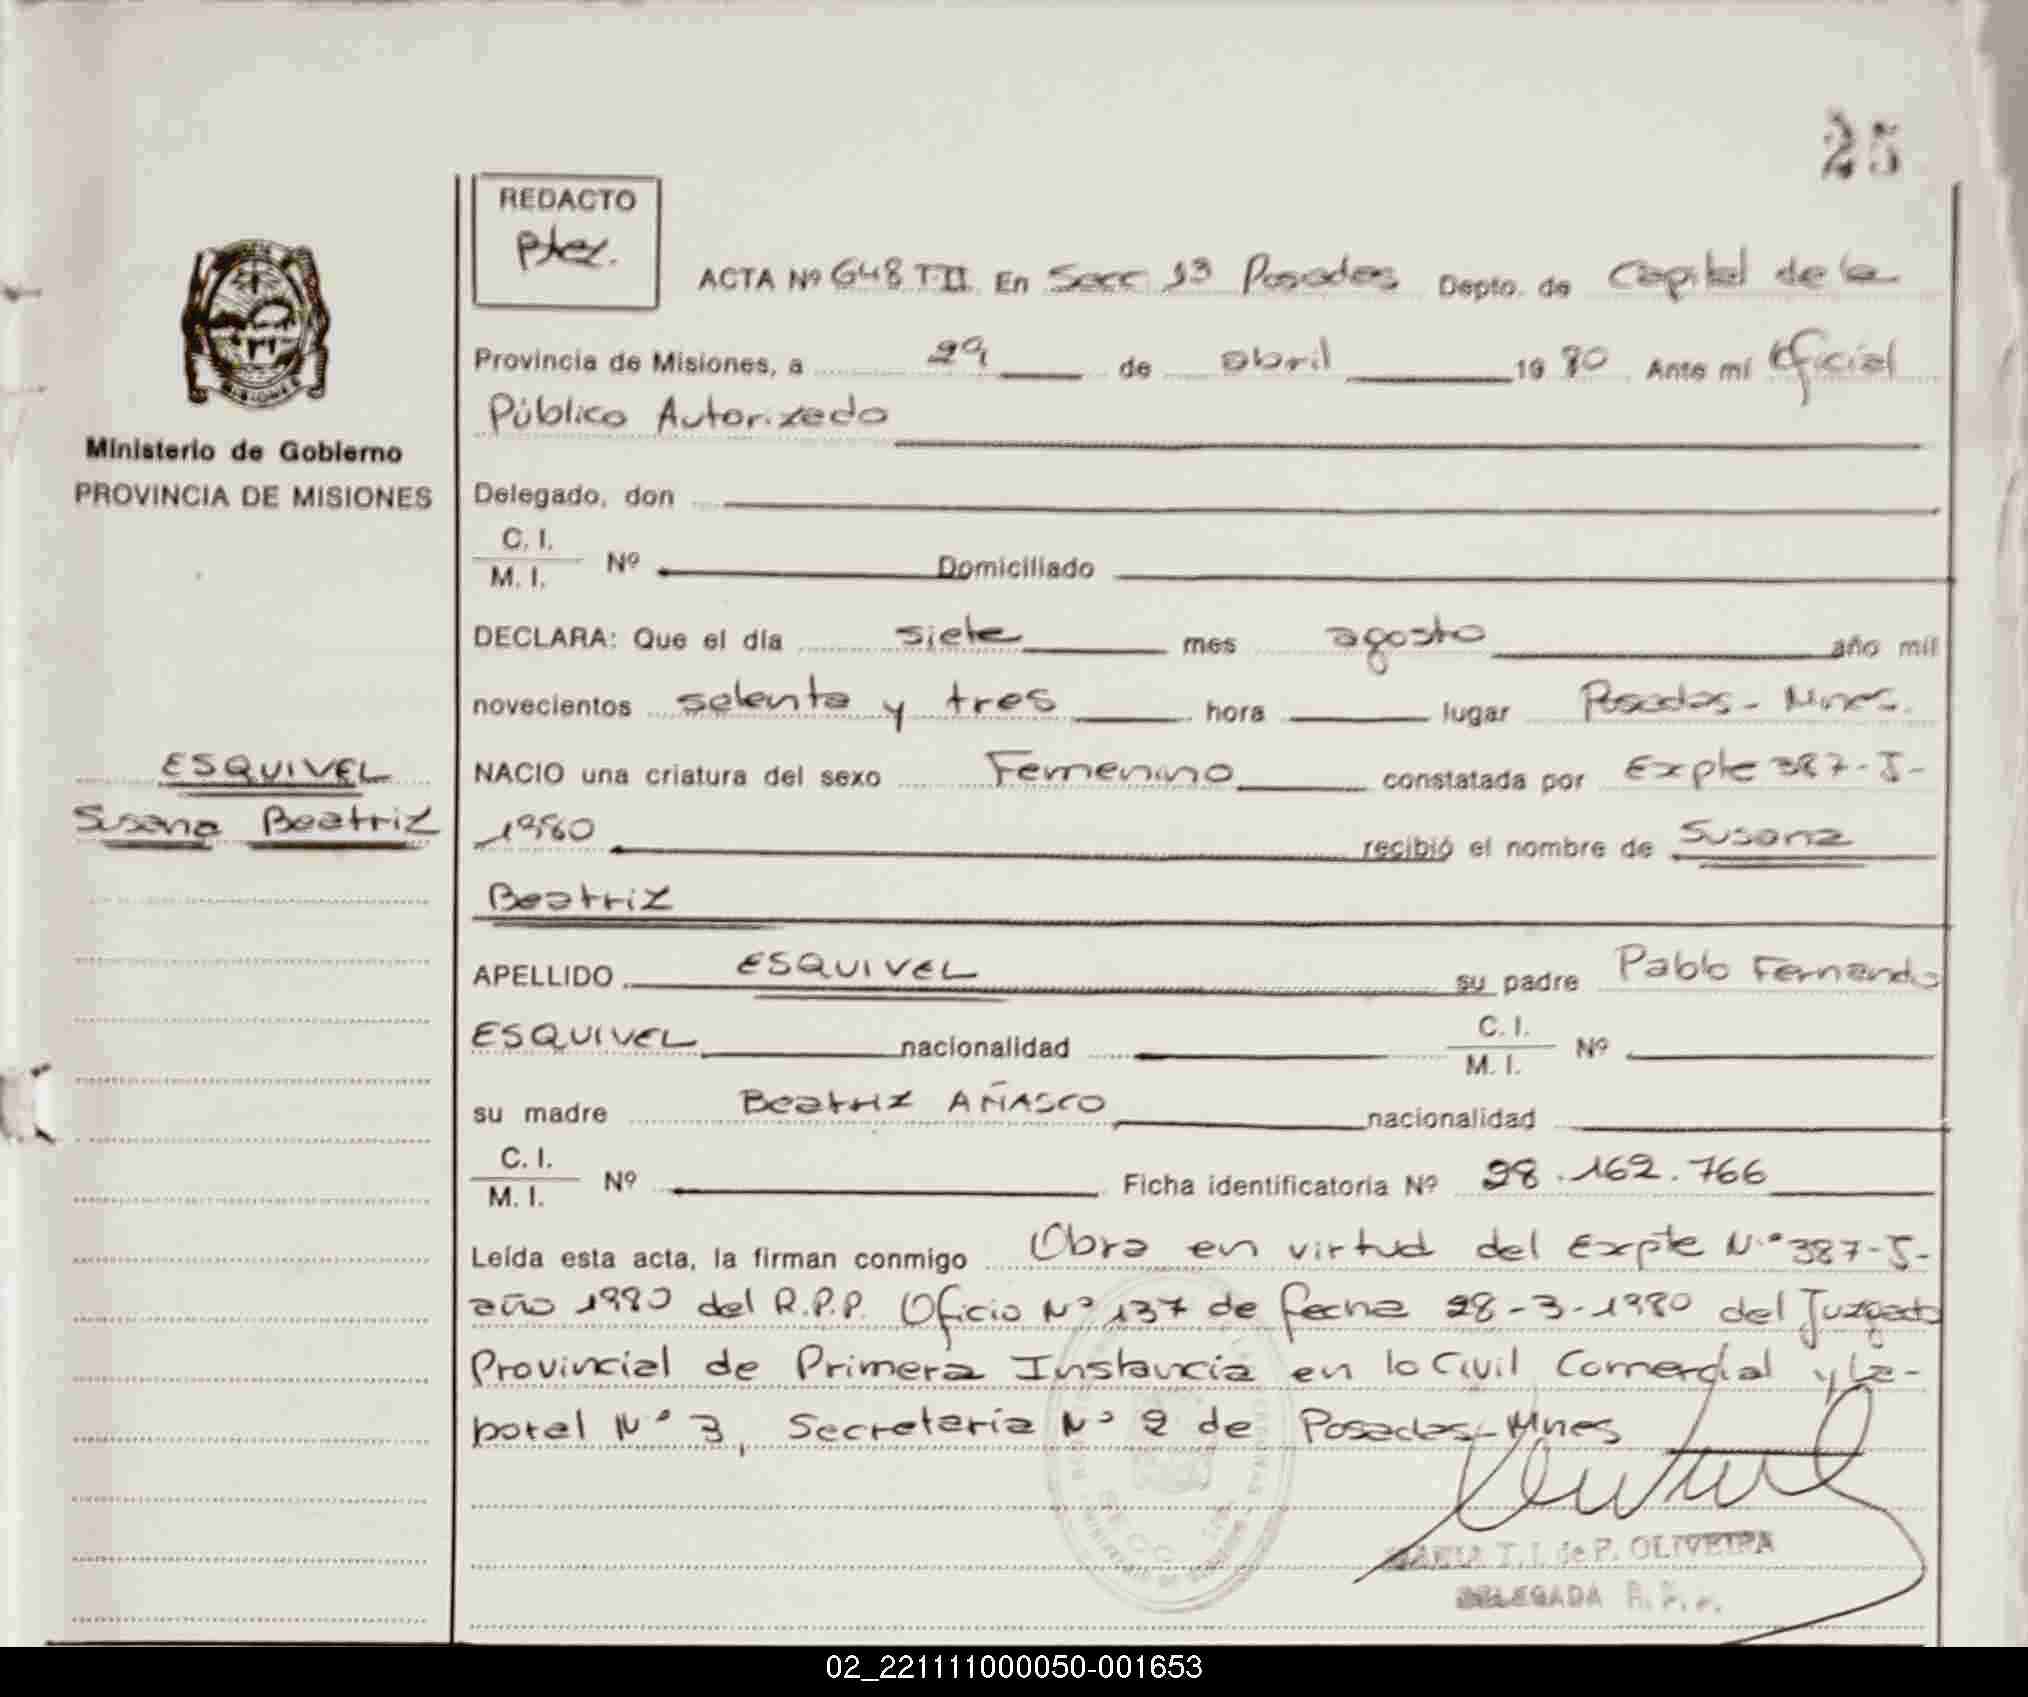 25
REDACTO
ACTA Nº 648 T-II En Secc 13 Posadas Depto. de Capital de la
Provincia de Misiones, a 29 de abril 1980 Ante mí Oficial
Público Autorizado
Ministerio de Gobierno
PROVINCIA DE MISIONES
Delegado, don
C. I.
M. I. Nº Domiciliado
DECLARA: Que el día siete mes agosto año mil
novecientos setenta y tres hora lugar Posadas - Mnes.
ESQUIVEL
Susana Beatriz
NACIO una criatura del sexo Femenino constatada por Expte 387-J-
1980 recibió el nombre de Susana
Beatriz
APELLIDO ESQUIVEL su padre Pablo Fernando
ESQUIVEL nacionalidad C. I.
M. I. Nº
su madre Beatriz AÑASCO nacionalidad
C. I.
M. I. Nº Ficha identificatoria Nº 28.162.766
Leída esta acta, la firman conmigo Obra en virtud del Expte N.º 387-J-
año 1980 del R.P.P. Oficio Nº 137 de fecha 28-3-1980 del Juzgado
Provincial de Primera Instancia en lo Civil Comercial y La-
boral Nº 3, Secretaria Nº 2 de Posadas - Mnes
MARIA T. I. de P. OLIVEIRA
DELEGADA R. P. P.
02_221111000050-001653